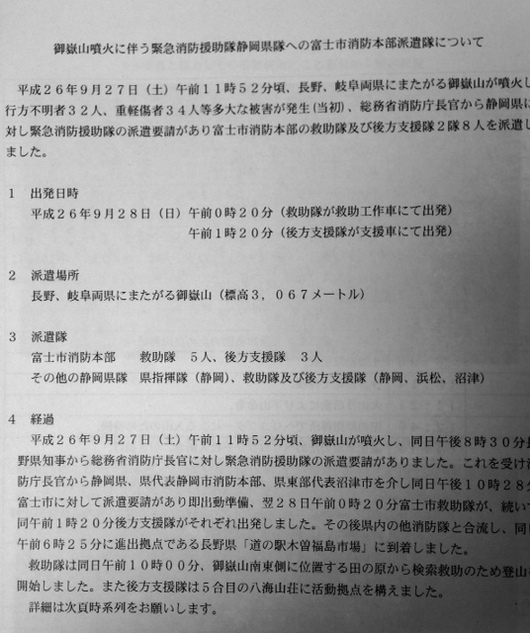 御嶽山噴火に伴う緊急消防援助隊静岡県隊への富士市消防本部派遣隊について
平成２６年９月２７日（土）午前１１時５２分頃、長野、岐阜両県にまたがる御嶽山が噴火し
行方不明者３２人、重軽傷者３４人等多大な被害が発生（当初）、総務省消防庁長官から静岡県に
対し緊急消防援助隊の派遣要請があり富士市消防本部の救助隊及び後方支援隊２隊８人を派遣し
ました。
１　出発日時
平成２６年９月２８日（日）午前０時２０分（救助隊が救助工作車にて出発）
午前１時２０分（後方支援隊が支援車にて出発）
２　派遣場所
長野、岐阜両県にまたがる御嶽山（標高３，０６７メートル）
３　派遣隊
富士市消防本部　　救助隊　５人、後方支援隊　３人
その他の静岡県隊　県指揮隊（静岡）、救助隊及び後方支援隊（静岡、浜松、沼津）
４　経過
平成２６年９月２７日（土）午前１１時５２分頃、御嶽山が噴火し、同日午後８時３０分長
野県知事から総務省消防庁長官に対し緊急消防援助隊の派遣要請がありました。これを受け消
防庁長官から静岡県、県代表静岡市消防本部、県東部代表沼津市を介し同日午後１０時２８分
富士市に対して派遣要請があり即出動準備、翌２８日午前０時２０分富士市救助隊が、続いて
同午前１時２０分後方支援隊がそれぞれ出発しました。その後県内の他消防隊と合流し、同日
午前６時２５分に進出拠点である長野県「道の駅木曽福島市場」に到着しました。
救助隊は同日午前１０時００分、御嶽山南東側に位置する田の原から検索救助のため登山を
開始しました。また後方支援隊は５合目の八海山荘に活動拠点を構えました。
詳細は次頁時系列をお願いします。